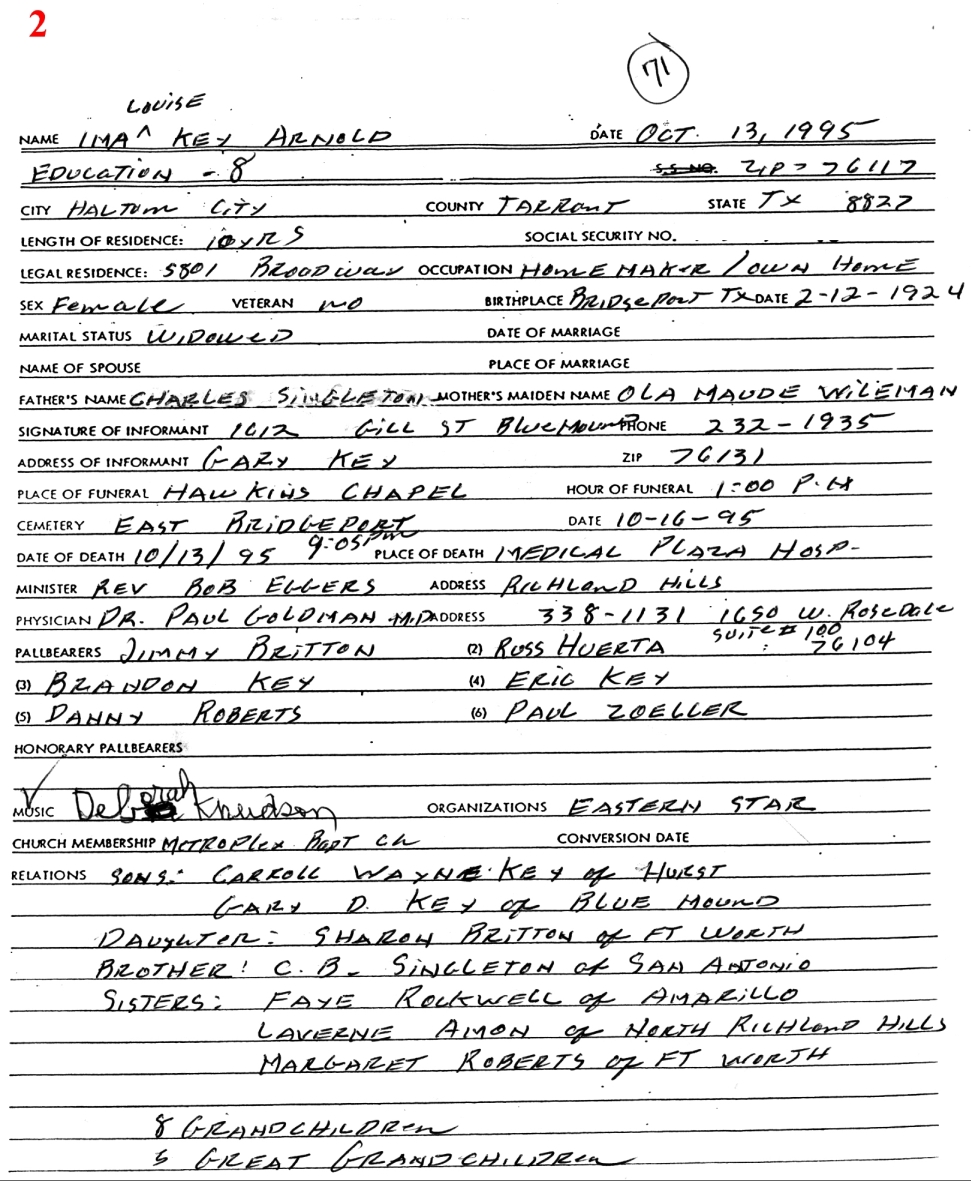 2
71
LOUISE
NAME IMA ^ KEY ARNOLD DATE OCT. 13, 1995
EDUCATION - 8 S.S. NO. ZIP > 76117
CITY HALTOM CITY COUNTY TARRANT STATE TX 8827
LENGTH OF RESIDENCE: 10 YRS SOCIAL SECURITY NO.
LEGAL RESIDENCE: 5801 BROADWAY OCCUPATION HOMEMAKER / OWN HOME
SEX Female VETERAN NO BIRTHPLACE BRIDGEPORT TX DATE 2-12-1924
MARITAL STATUS WIDOWED DATE OF MARRIAGE
NAME OF SPOUSE PLACE OF MARRIAGE
FATHER'S NAME CHARLES SINGLETON MOTHER'S MAIDEN NAME OLA MAUDE WILEMAN
SIGNATURE OF INFORMANT 1612 GILL ST BLUE MOUND PHONE 232-1935
ADDRESS OF INFORMANT GARY KEY ZIP 76131
PLACE OF FUNERAL HAWKINS CHAPEL HOUR OF FUNERAL 1:00 P.M
CEMETERY EAST BRIDGEPORT DATE 10-16-95
DATE OF DEATH 10/13/95 9:05 pm PLACE OF DEATH MEDICAL PLAZA HOSP.
MINISTER REV BOB EGGERS ADDRESS RICHLAND HILLS
PHYSICIAN DR. PAUL GOLDMAN M.D ADDRESS 338-1131 1650 W. ROSEDALE
SUITE # 100
PALLBEARERS JIMMY BRITTON (2) RUSS HUERTA 76104
(3) BRANDON KEY (4) ERIC KEY
(5) DANNY ROBERTS (6) PAUL ZOELLER
HONORARY PALLBEARERS
MUSIC Deborah Knudson ORGANIZATIONS EASTERN STAR
CHURCH MEMBERSHIP METROPLEX BAPT CH CONVERSION DATE
RELATIONS SONS: CARROLL WAYNE KEY of HURST
GARY D. KEY of BLUE MOUND
DAUGHTER: SHARON BRITTON of FT WORTH
BROTHER: C.B. SINGLETON of SAN ANTONIO
SISTERS: FAYE ROCKWELL of AMARILLO
LAVERNE AMON of NORTH RICHLAND HILLS
MARGARET ROBERTS of FT WORTH
8 GRANDCHILDREN
5 GREAT GRANDCHILDREN